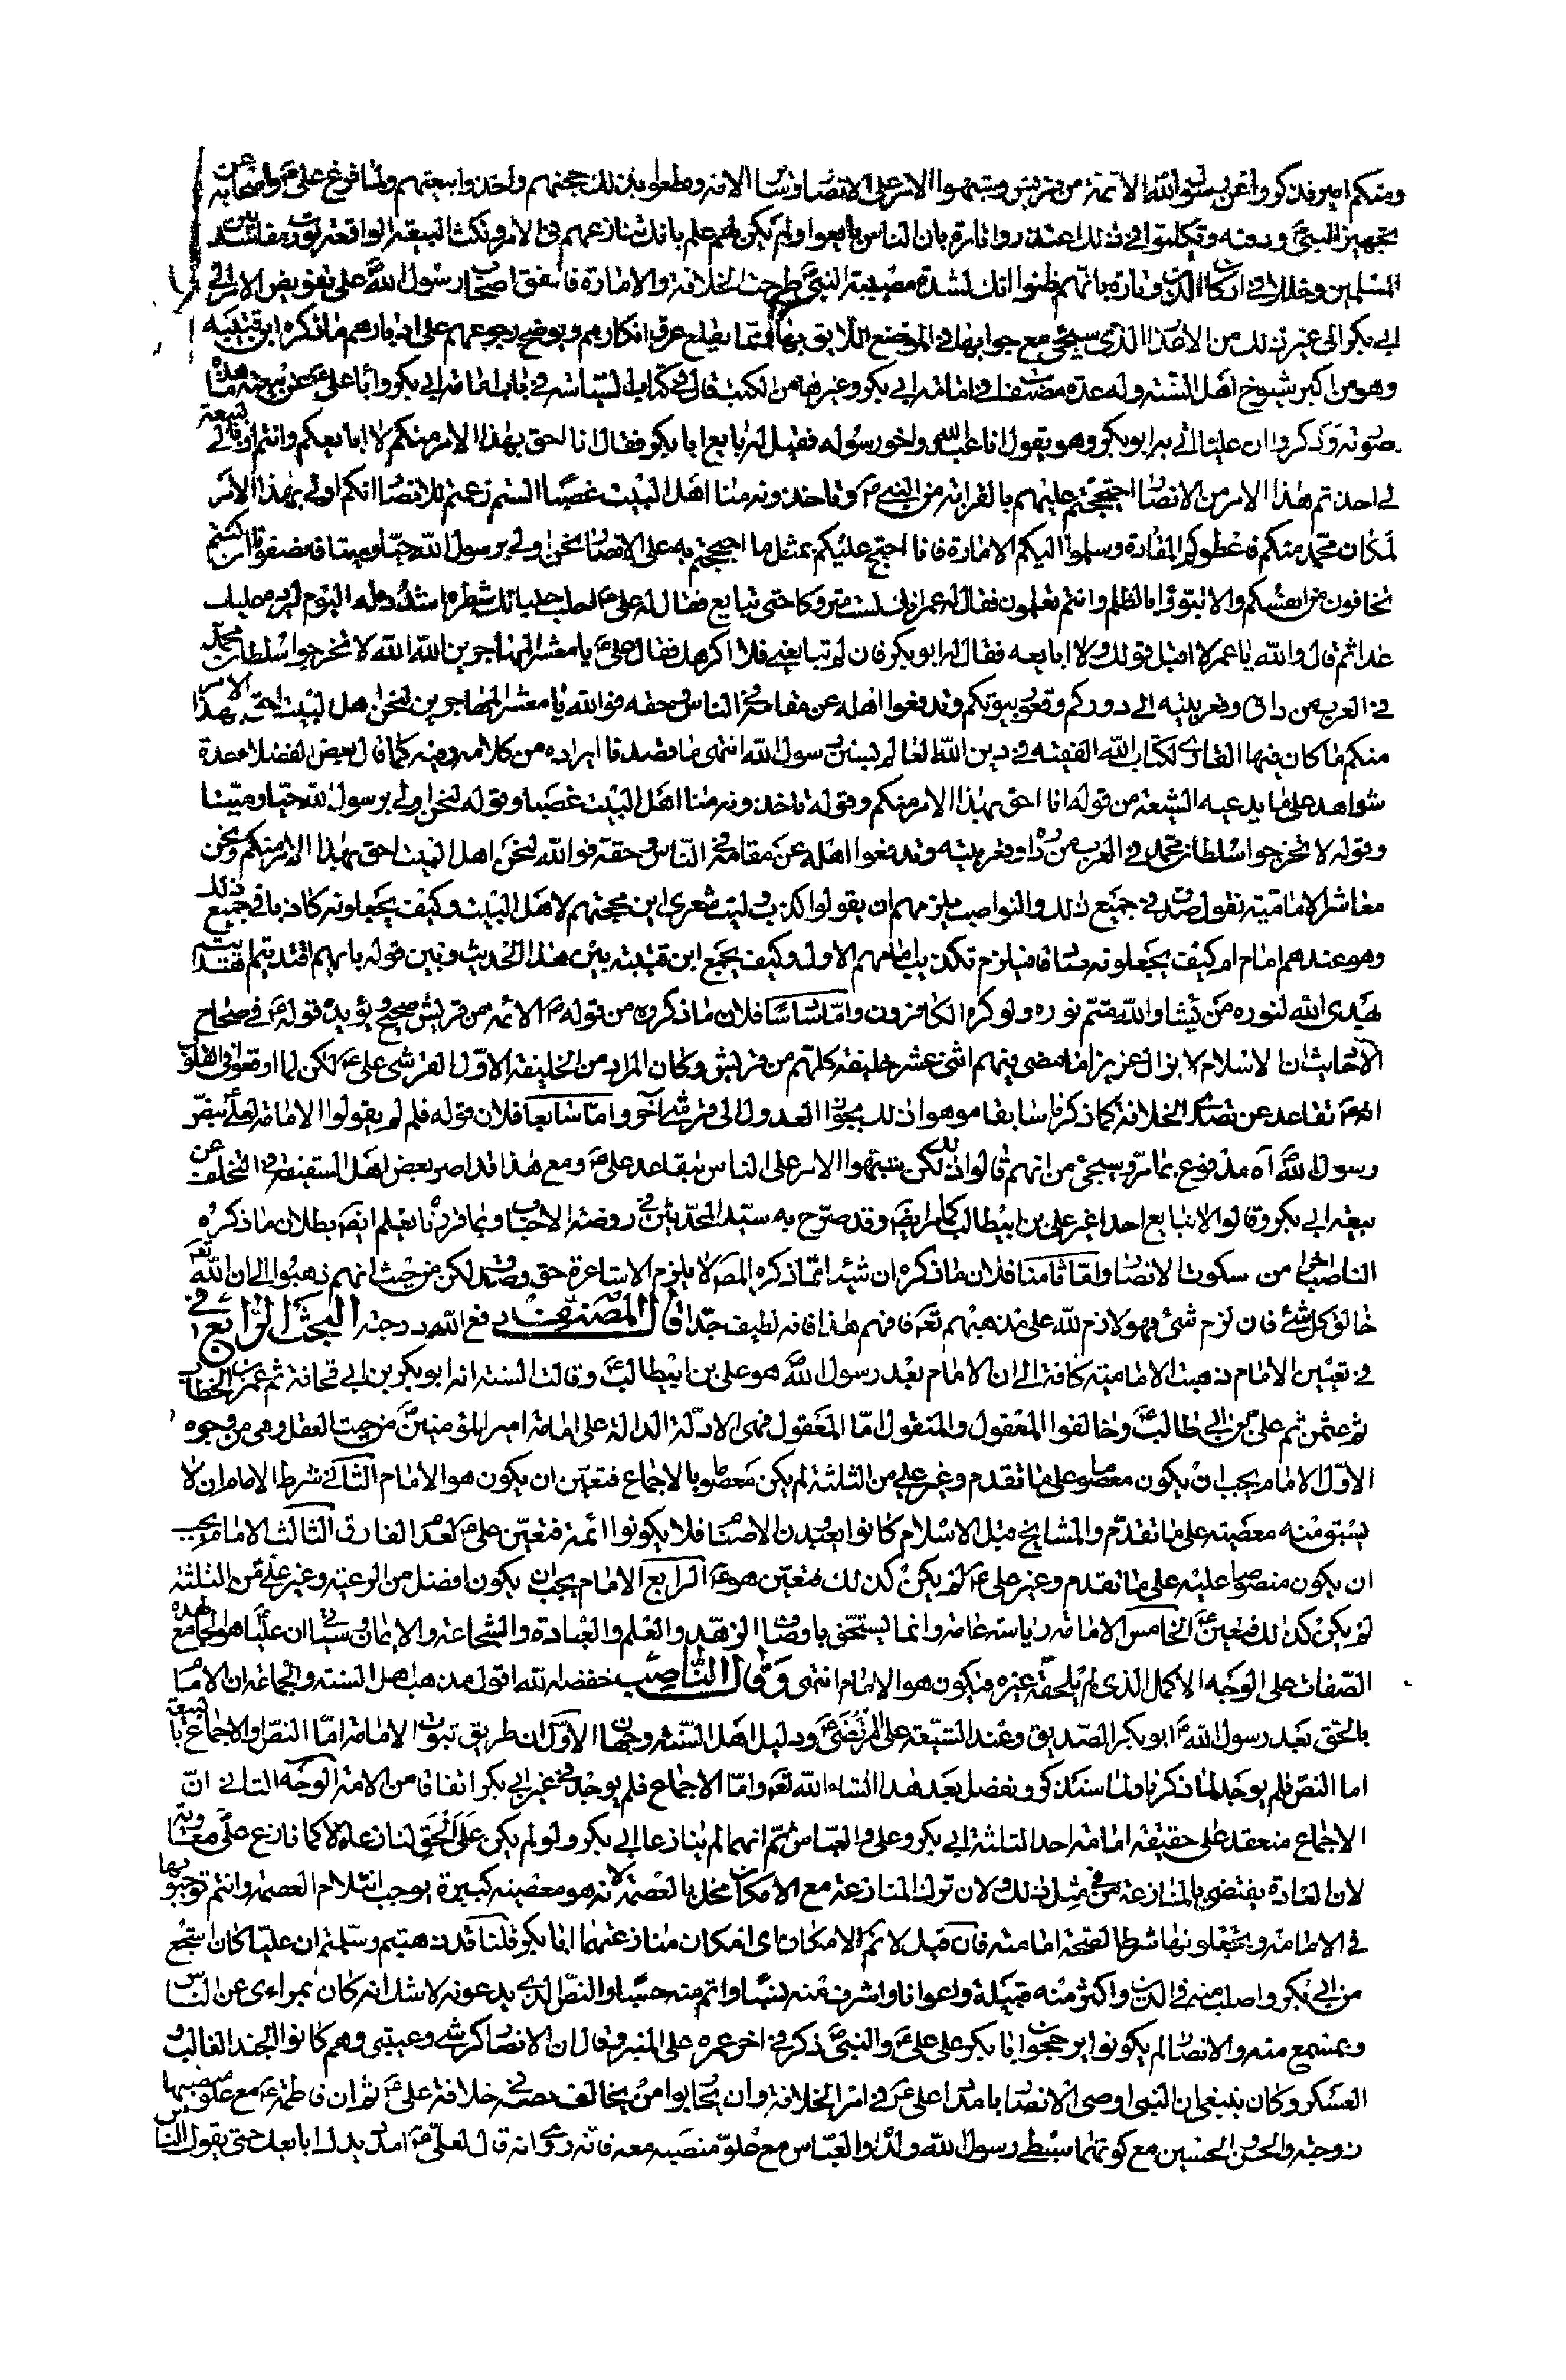 ومنكم امير فذكروا عن رسول الله الائمة من قريش وشبهوا الامر على الانصار وسائر الامة وقطعوا بذلك حجتهم واخذوا بيعتهم ولما فرغ علي ع واصحابه عن
تجهيز النبي ودفنه وتكلموا في ذلك اعتذروا تارة بان الناس بايعوا ولم يكن لهم علم بانك تنازعهم في الامر ونكث البيعة الواقعة يورث مفاسد بين
المسلمين وخللا في اركان الدين وتارة بانهم ظنوا انك لشدة مصيبة النبي طرحت الخلافة والامارة فاتفق اصحاب رسول الله على تفويض الامر الى
ابي بكر الى غير ذلك من الاعذار الذي سيجئ مع جوابها في الموضع اللايق بها ومما يقلع عرق انكارهم ويوضح رجوعهم على ادبارهم ما ذكره ابن قتيبة
وهو من اكبر شيوخ اهل السنة وله عدة مصنفات في امامة ابي بكر وغيرها من الكتب قال في كتاب السياسة في باب امامة ابي بكر واباء علي ع عن بيعته ما هذه
صورته وذكروا ان عليا اتى به ابو بكر وهو يقول انا عبد الله واخو رسوله فقيل له بايع ابا بكر فقال انا احق بهذا الامر منكم لا ابايعكم وانتم اولى بالبيعة
لي اخذتم هذا الامر من الانصار احتججتم عليهم بالقرابة من النبي ص وتاخذونه منا اهل البيت غصبا الستم زعمتم للانصار انكم اولى بهذا الامر
لمكان محمد منكم فاعطوكم المقادة وسلموا اليكم الامارة فانا احتج عليكم بمثل ما احتججتم به على الانصار نحن اولى برسول الله حيا وميتا فانصفونا ان كنتم
تخافون من انفسكم والا فبوؤا بالظلم وانتم تعلمون فقال له عمر انك لست متروكا حتى تبايع فقال له علي ع احلب حلبا لك شطره اشدد له اليوم امره عليك
غدا ثم قال والله يا عمر لا اقبل قولك ولا ابايعه فقال له ابو بكر فان لم تبايعني فلا اكرهك فقال علي ع يا معشر المهاجرين الله الله لا تخرجوا سلطان محمد
في العرب من داره وقعر بيته الى دوركم وقعور بيوتكم وتدفعوا اهله عن مقامه في الناس وحقه فوالله يا معشر المهاجرين لنحن اهل البيت احق بهذا الامر
منكم ما كان فينا القاري لكتاب الله الفقيه في دين الله العالم بسنن رسول الله انتهى ما قصدنا ايراده من كلامه وفيه كما قال بعض الفضلا عدة
شواهد على ما يدعيه الشيعة من قوله انا احق بهذا الامر منكم وقوله تاخذونه منا اهل البيت غصبا وقوله نحن اولى برسول الله حيا وميتا
وقوله لا تخرجوا سلطان محمد في العرب من داره وقعر بيته وتدفعوا اهله عن مقامه في الناس وحقه فوالله لنحن اهل البيت احق بهذا الامر منكم ونحن
معاشر الامامية نقول صدق في جميع ذلك والنواصب يلزمهم ان يقولوا كذب وليت شعري اين محبتهم لاهل البيت وكيف يجعلونه كاذبا في جميع ذلك
وهو عندهم امام ام كيف يجعلونه صادقا فيلزم تكذيب امامهم الاول وكيف يجمع ابن قتيبة بين هذا الحديث وبين قوله بايهم اقتديتم اهتديتم
يهدي الله لنوره من يشاء والله متم نوره ولو كره الكافرون واما سادسا فلان ما ذكره من قوله ص الائمة من قريش صحيح يؤيده قوله ص في صحاح
الاحاديث ان الاسلام لا يزال عزيزا ما مضى فيهم اثنى عشر خليفة كلهم من قريش وكان المراد من الخليفة الاول القرشي علي ع لكن لما اوقعوا في القلوب
انه ع تقاعد عن تصدي الخلافة كما ذكرنا سابقا موهوا ذلك بجواز العدول الى قرشي آخر واما سابعا فلان قوله فلم لم يقولوا الامامة لعلي بنص
رسول الله آه مدفوع بما مر وسيجئ من انهم قالوا ذلك لكن شبهوا الامر على الناس بتقاعد علي ع ومع هذا قد اصر بعض اهل السقيفة في التخلف عن
بيعة ابي بكر وقالوا لا نبايع احدا غير علي بن ابيطالب كما مر ايضا وقد صرح به سيد المحدثين في روضة الاحباب وبما قررنا يعلم ايضا بطلان ما ذكره
الناصب اخرا من سكوت الانصار واما ثامنا فلان ما ذكره ان شيئا مما ذكره المص لا يلزم الاشاعرة حق وصدق لكن من حيث انهم ذهبوا الى ان الله تع
خالق كل شئ فان لزم شئ فهو لازم لله على مذهبهم تع فافهم هذا فانه لطيف جدا قال المصنف رفع الله درجته البحث الرابع في
في تعيين الامام ذهبت الامامية كافة الى ان الامام بعد رسول الله هو علي بن ابيطالب ع وقالت السنة انه ابو بكر بن ابي قحافة ثم عمر بن الخطاب
ثم عثمن ثم علي بن ابي طالب ع وخالفوا المعقول والمنقول اما المعقول فهي الادلة الدالة على امامة امير المؤمنين ع من حيث العقل وهي من وجوه
الاول الامام يجب ان يكون معصوما على ما تقدم وغير علي من الثلثة لم يكن معصوما بالاجماع فتعين ان يكون هو الامام الثاني شرط الامام ان لا
يسبق منه معصية على ما تقدم والمشايخ قبل الاسلام كانوا يعبدون الاصنام فلا يكونوا ائمة فتعين علي ع لعدم الفارق الثالث الامام يجب
ان يكون منصوصا عليه على ما تقدم وغير علي ع لم يكن كذلك فتعين هو ع الرابع الامام يجب ان يكون افضل من الرعية وغير علي من الثلثة
لم يكن كذلك فتعين ع الخامس الامامة رياسة عامة وانما يستحق باوصاف الزهد والعلم والعبادة والشجاعة والايمان وسياتي ان عليا هو الجامع لهذه
الصفات على الوجه الاكمل الذي لم يلحقه غيره فيكون هو الامام انتهى وقال الناصب خفضه الله اقول مذهب اهل السنة والجماعة ان الامام
بالحق بعد رسول الله ص ابو بكر الصديق وعند الشيعة علي المرتضى ع ودليل اهل السنة وجهان الاول ان طريق ثبوت الامامة اما النص او الاجماع بالبيعة
اما النص فلم يوجد لما ذكرنا ولما سنذكر ونفصل بعد هذا انشاء الله تع واما الاجماع فلم يوجد في غير ابي بكر اتفاقا من الامة الوجه الثاني ان
الاجماع منعقد على حقيقة امامة احد الثلثة ابي بكر وعلي والعباس ثم انهما لم ينازعا ابي بكر ولو لم يكن على الحق لنازعاه كما نازع علي معاوية
لان العادة يقتضي بالمنازعة في مثل ذلك ولان ترك المنازعة مع الامكان مخل بالعصمة لانه هو معصية كبيرة يوجب انثلام العصمة وانتم توجبونها
في الامامة وتجعلونها شرطا لصحة امامته فان قيل لا نم الامكان اي امكان منازعتهما ابا بكر قلنا قد ذهبتم وسلمتم ان عليا كان اشجع
من ابي بكر واصلب منه في الدين واكثر منه قبيلة واعوانا واشرف منه نسبا واتم منه حسبا والنص الذي يدعونه لا شك انه كان بمرأى عن الناس
وبمسمع منه والانصار لم يكونوا يرجحون ابا بكر على علي ع والنبي ص ذكر في اخر عمره على المنبر وقال ان الانصار كرشي وعيبتي وهم كانوا الجند الغالب و
العسكر وكان ينبغي ان النبي اوصى الانصار بامداد علي ع في امر الخلافة وان يحاربوا من يخالف نصه في خلافة علي ع ثم ان فاطمة ع مع علو منصبها
زوجته والحسن والحسين مع كونهما سبطي رسول الله ولداه والعباس مع علو منصبه معه فانه روي انه قال لعلي ع امدد يدك ابايعك حتى يقول الناس